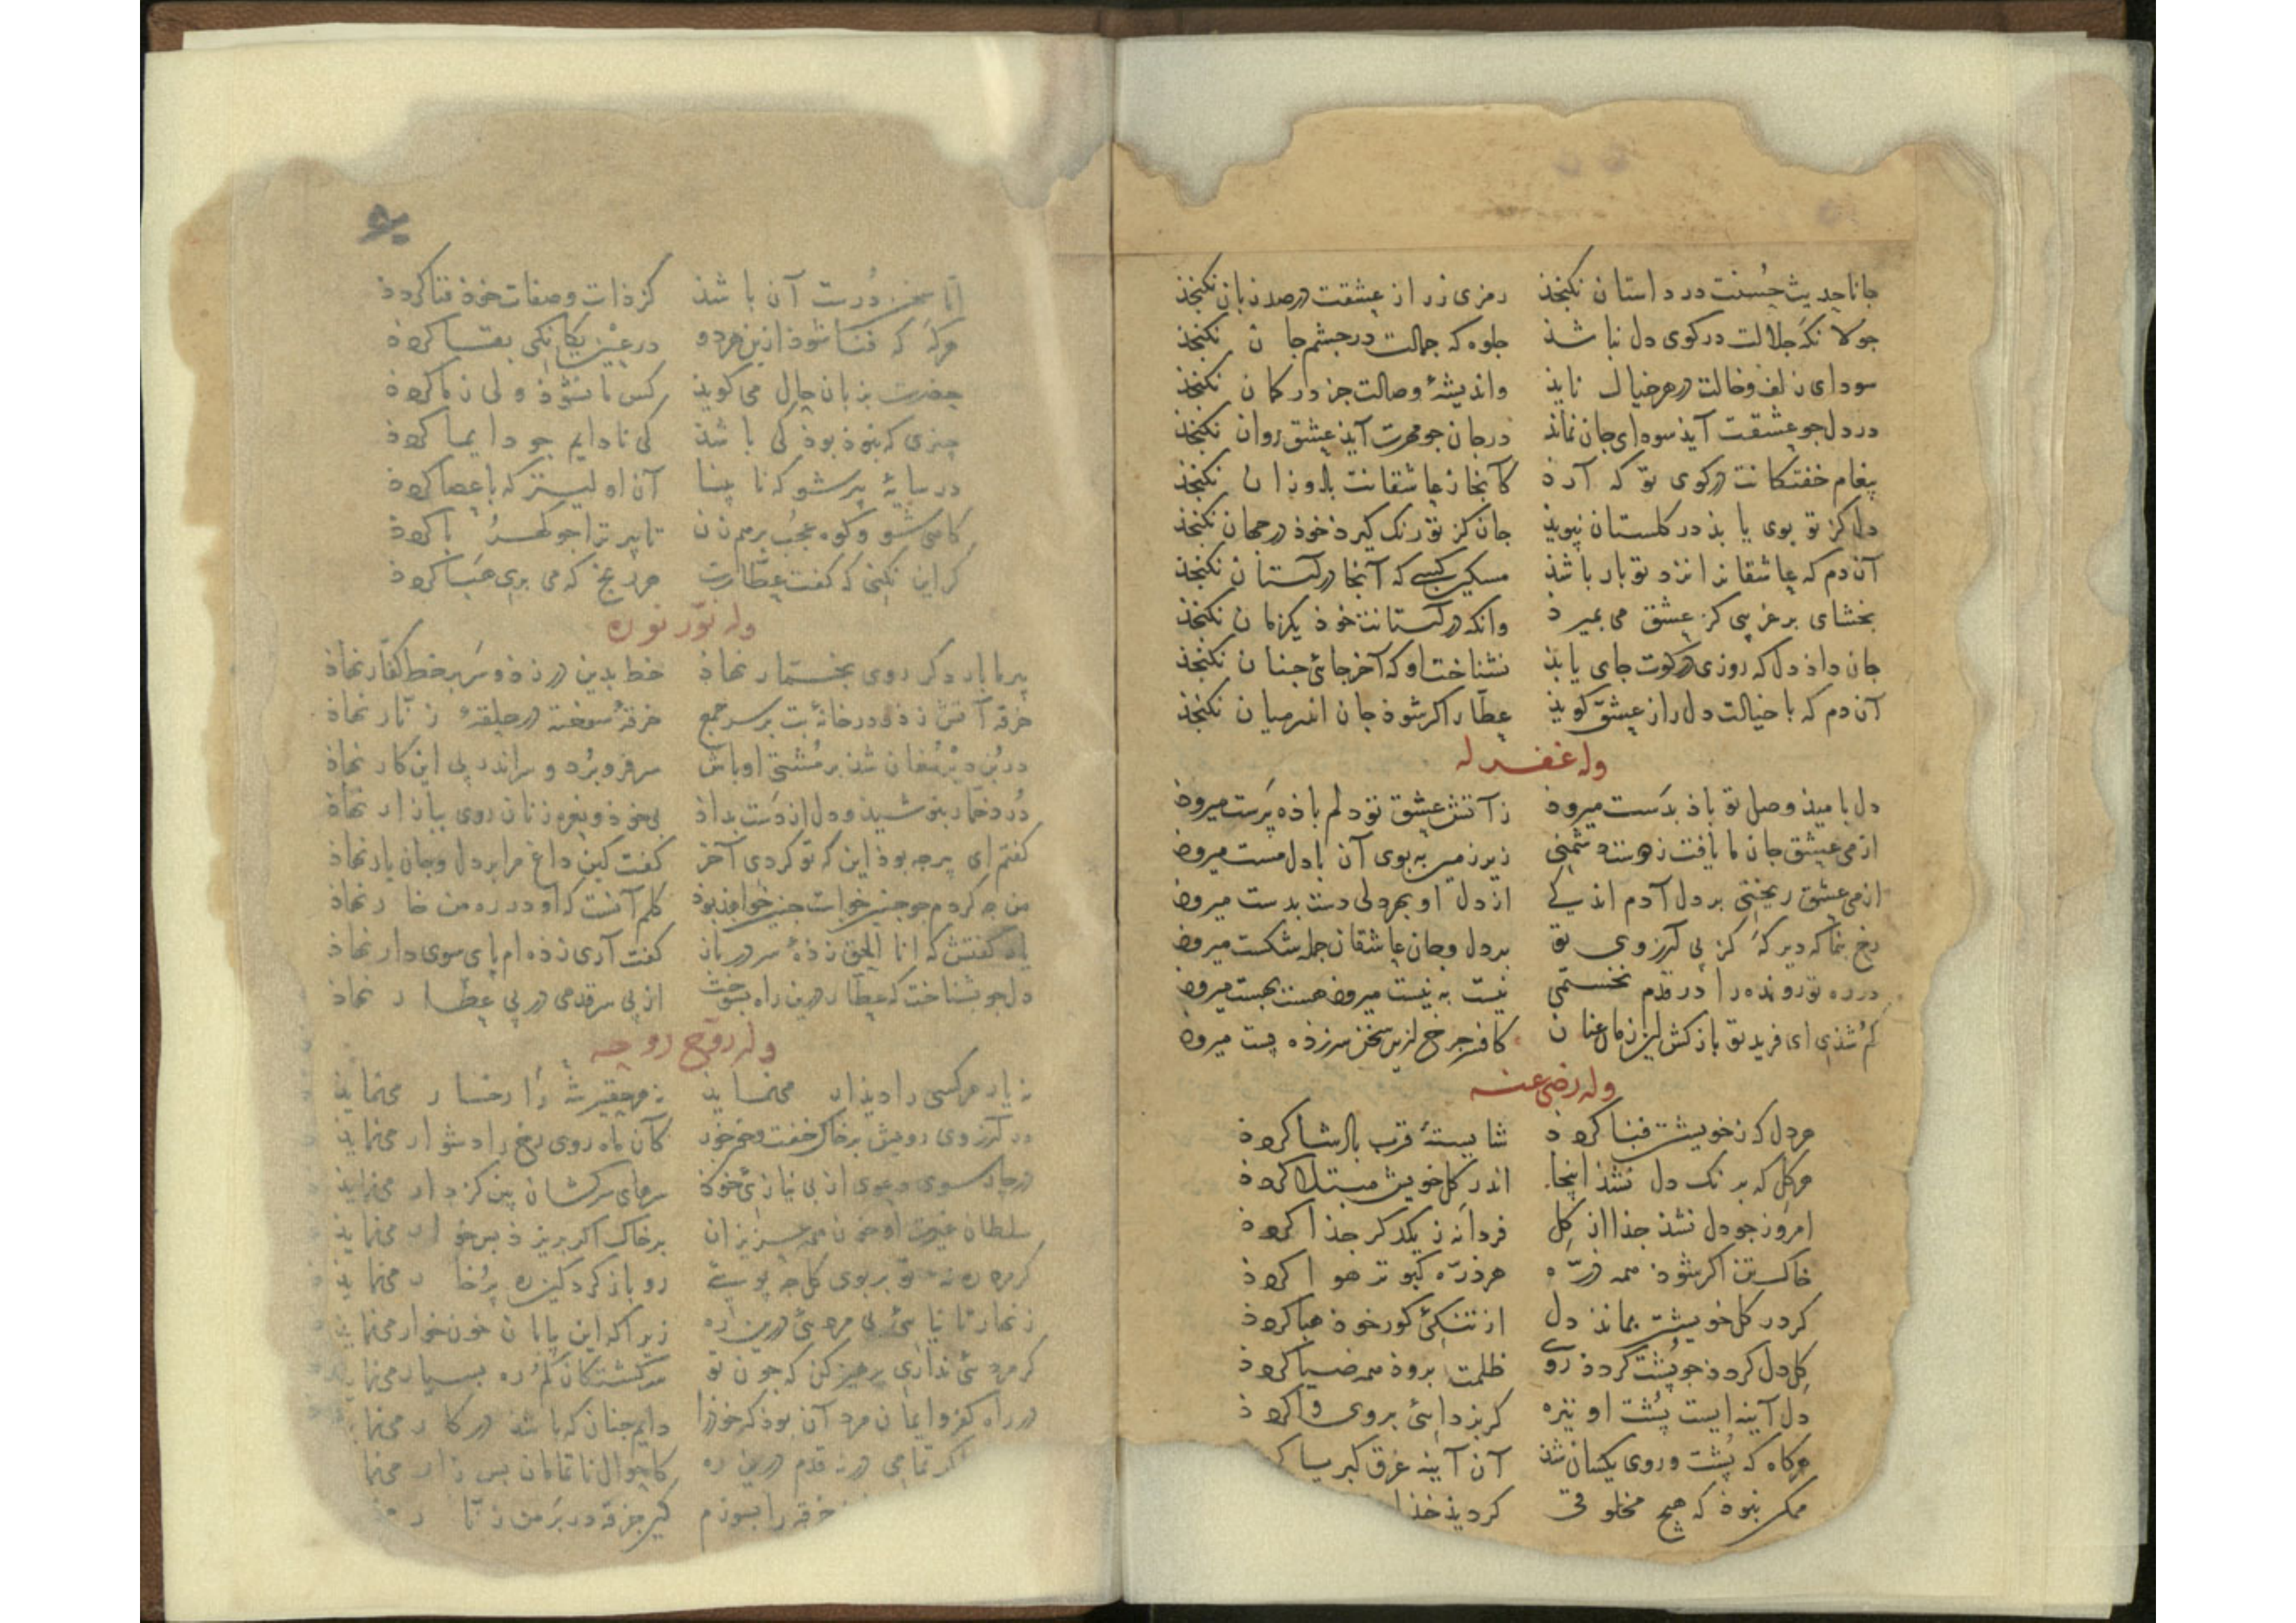 جانا حدیث حُسنت در داستان نکنجذ رمزی ز راز عشقت در صد زبان نکنجذ
جولانکَه جلالت در کوی دل نباشذ جلوه که جمالت در جشم جان نکنجذ
سودای زلف و خالت در هر خیال نایذ واندیشهٔ وصالت جز در کمان نکنجذ
در دل جو عشقت آیذ سودای جان نماند در جان جو مهرت آیذ عشق روان نکنجذ
پیغام خفتکانت در کوی تو که آرد کانجا ز عاشقانت باد وزان نکنجذ
دل کز تو بوی یابذ در کلستان نپویذ جان کز تو رنک کیرذ خوذ در جهان نکنجذ
آن دم که عاشقانرا نزد تو بار باشذ مسکین کسی که آنجا در آستان نکنجذ
بخشای بر غریبی کز عشق می بمیرد وانکه در آستانت خوذ یکزمان نکنجذ
جان داذ دل که روزی در کوت جای یابذ نشناخت او که آخر جائی جنان نکنجذ
آن دم که با خیالت دل راز عشق کویذ عطار اکر شوذ جان اندر میان نکنجذ
وله غفر له
دل بامیذ وصل تو باذ بدَست میروذ ز آتش عشق تو دلم باذه پَرَست میروذ
از می عشق جان ما یافت ز دور شمّهٔ زیر زمین به بوی آن با دل مست میروذ
از می عشق ریختی بر دل آدم اندکی از دل او بهر دلی دست بدست میروذ
رخ بنما که دیرکَه کز پی آرزوی تو بر دل و جان عاشقان جمله شکست میروذ
در ره تو رونده را در قدم نخستمی نیست به نیست میروذ هست بهست میروذ
کم شذی ای فرید تو بازکش این زمان عنان کافر جرخ ازین سخن سرزده پست میروذ
وله رضی عنه
هر دل که ز خویشتن فنا کردذ شایستهٔ قرب پادشا کردذ
هر کِل که برنک دل نشذ اینجا اندر کِل خویش مبتلا کردذ
امروز جو دل نشذ جذا از کِل فردا نه ز یکدکر جذا کردذ
خاک تن اکر شوذ همه ذرّه هر ذرّه کبوتر هوا کردذ
کر در کل خویشتن بماند دل از تنکئ کور خوذ هبا کردذ
کِل دل کردذ جو پُشت کردذ روی ظلمت بروذ همه ضیا کردذ
دل آینه ایست پُشت او تیره کر بزدایئ بروی وا کردذ
هرکاه که پُشت و روی یکسان شذ آن آینه غرق کبریا کر
ممکن نبوذ که هیچ مخلوقی کردیذ خذا
امّا سخن دُرست آن باشذ کز ذات و صفات خوذ فنا کردذ
هرکَه که فنا شوذ ازین هر دو در عین یکانکی بقا کردذ
حضرت بزبان حال می کویذ کس ما نشوذ ولی ز ما کردذ
چیزی که نبوذ بوذ کی باشذ کی نادایم جو دایما کردذ
در سایهٔ پیر شو که نابینا آن اولیتر که با عصا کردذ
کاهی شو و کوه عجُب برهم زن تا پیر ترا جو کهربا کردذ
کر این نکنی که کفت عطّارت هر رنج که می بری هَبا کردذ
وله نوّر نوره
پیر ما بار دکر روی بخمّار نهاذ خط بدین در زذ و سَر بر خط کفّار نهاذ
خرقه آتش زذ و در خانهٔ بت بر سر جمع خرقهٔ سوخته در حلقهٔ زنّار نهاذ
در بُن دیْر مُغان شذ بر مُشتی اوباش سر فرو برُد و سر اندر پی این کار نهاذ
دُرد خمّار بنوشیذ و دل از دَست بداذ بی خوذ و نعره زنان روی ببازار نهاذ
کفتم ای پیر جه بوذ این که تو کردی آخر کفت کین داغ مرا بر دل و جان یار نهاذ
من جه کردم جو جنین خواست جنین خواهذ بوذ کلم آنست که او در ره من خار نهاذ
باز کفتش که انا الحق زذهٔ سر در باز کفت آری زذه ام پای سوی دار نهاذ
دل جو بشناخت که عطّار درین راه بسوخت از پی سر قدمی در پی عطّار نهاذ
وله روّح روحه
نه یار هر کسی را دیذار می نمایذ نه هر حقیر شَه را رخسار می نمایذ
در آرزوی رویش بر خاک خفت و خون خور کان ماه روی رخ را دشوار می نمایذ
در جار سوی دعوی از بی نیازی خوذ سرهای سرکشان بین کز دار می نمایذ
سلطان غیرت او خون همه عزیزان بر خاک اکر بریزذ بس خوار می نمایذ
رو باز کرد کین ره پُر خار می نمایذ
زنهار تا نیائی بی رهبری درین ره زیرا که این بیابان خون خوار می نمایذ
کر مردمئی نداری پرهیز کن که جون تو سرکشتکان کم ره بسیار می نمایذ
در راه کفر و ایمان مرد آن بوذ که خوذرا دایم جنان که باشذ در کار می نما
کر تمامی در نه قدم درین ره کاحوال ناتمامان بس زار می نما
خرقه را بسوزم کین خرقه در بَر من زنّار